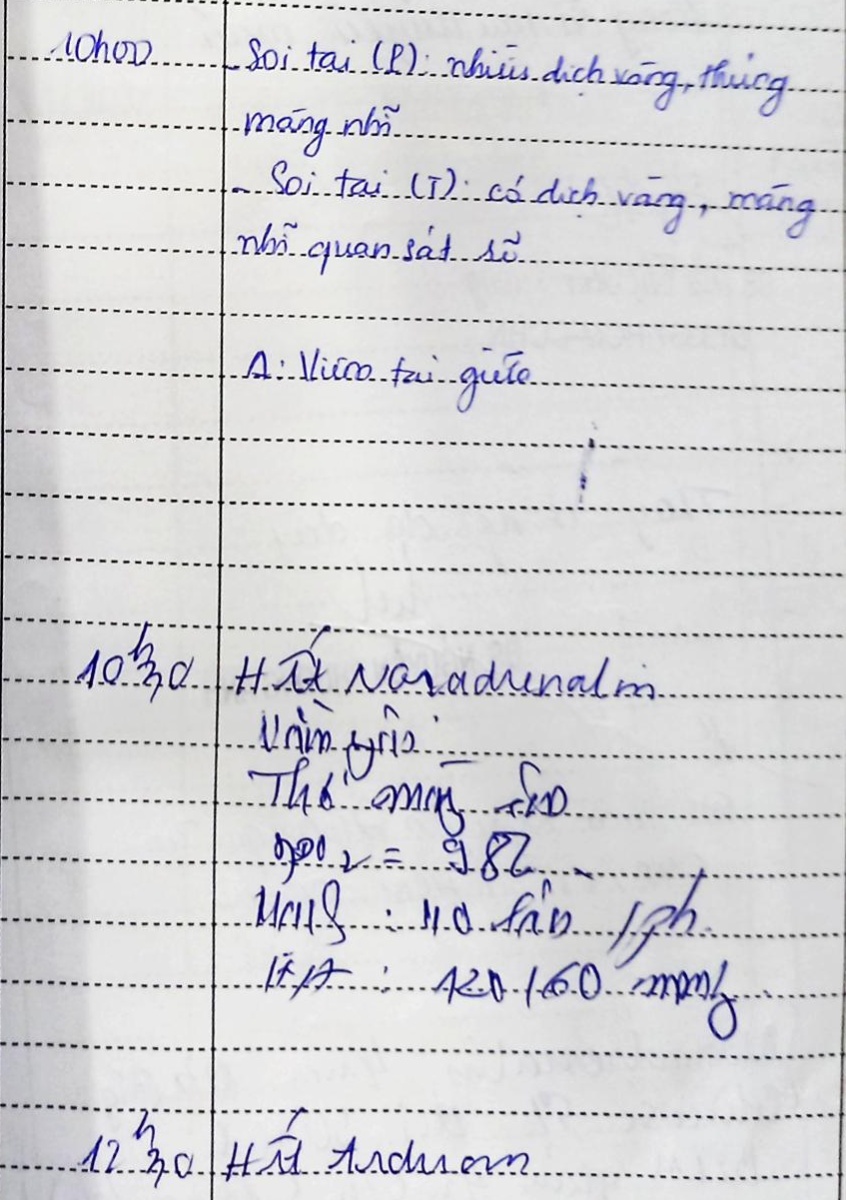 10h00 - Soi tai (P): nhiều dịch vàng, thủng
màng nhĩ
- Soi tai (T): có dịch vàng, màng
nhĩ quan sát rõ
A: Viêm tai giữa
10h30 Hết Noradrenalin
Thở máy
SpO2 = 98%
: 110 lần /ph
HA : 120/60 mmHg
12h30 Hết Arduan